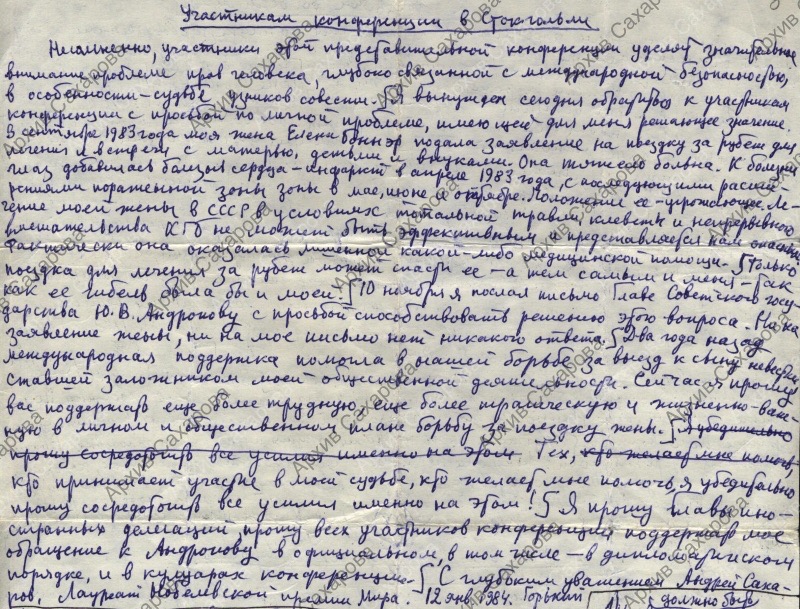 Участникам конференции в Стокгольме
Несомненно, участники этой представительной конференции уделят значительное
внимание проблеме прав человека, глубоко связанной с международной безопасностью,
в особенности – судьбе узников совести. [Я вынужден сегодня обратиться к участникам
конференции с просьбой по личной проблеме, имеющей для меня решающее значение.
В сентябре 1983 года моя жена Елена Боннэр подала заявление на поездку за рубеж для
лечения и встречи с матерью, детьми и внуками. Она тяжело больна. К болезни
глаз добавилась болезнь сердца – инфаркт в апреле 1983 года, с последующими расши-
рениями пораженной зоны зоны в мае, июне и октябре. Положение ее – угрожающее. Ле-
чение моей жены в СССР в условиях тотальной травли, клеветы и непрерывного
вмешательства КГБ не может быть эффективным и представляется нам опасным.
Фактически она оказалась лишенной какой-либо медицинской помощи. [Только
поездка для лечения за рубеж может спасти ее – а тем самым и меня – так
как ее гибель была бы и моей! [10 ноября я послал письмо Главе Советского госу-
дарства Ю.В. Андропову с просьбой способствовать решению этого вопроса. Ни на
заявление жены, ни на мое письмо нет никакого ответа. [Два года назад
международная поддержка помогла в нашей борьбе за выезд к сыну невестки,
ставшей заложником моей общественной деятельности. Сейчас я прошу
вас поддержать еще более трудную, еще более трагическую и жизненно-важ-
ную в личном и общественном плане борьбу за поездку жены. [Я убедительно
прошу сосредоточить все усилия именно на этом Тех, кто желает мне помочь,
кто принимает участие в моей судьбе, кто желает мне помочь, я убедительно
прошу сосредоточить все усилия именно на этом! [Я прошу главы ино-
странных делегаций, прошу всех участников конференции поддержать мое
обращение к Андропову в официальном, в том числе – в дипломатическом
порядке, и в кулуарах конференции. [С глубоким уважением Андрей Саха-
ров, Лауреат Нобелевской премии Мира. 12 янв. 1984. Горький
должно быть
Архив Сахарова